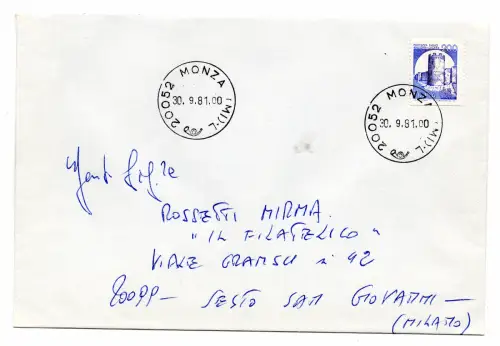 20052 MONZA (MI)-L
30. 9.81.00
200
20052 MONZA (MI)-L
30. 9.81.00
Gent. Sig.re
ROSSETTI MIRMA.
"IL FILATELICO"
VIALE GRAMSCI n° 42
20099 - SESTO SAN GIOVANNI -
(MILANO)